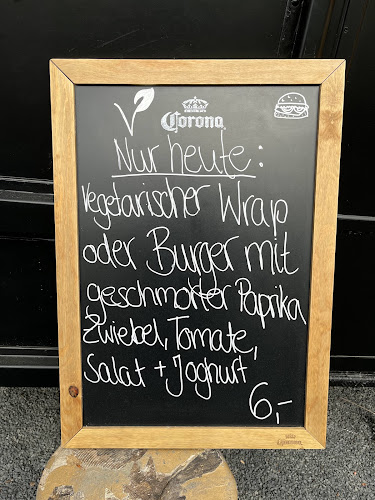 Corona
Nur heute:
Vegetarischer Wrap
oder Burger mit
geschmorter Paprika
Zwiebel, Tomate,
Salat + Joghurt
6,-
Corona